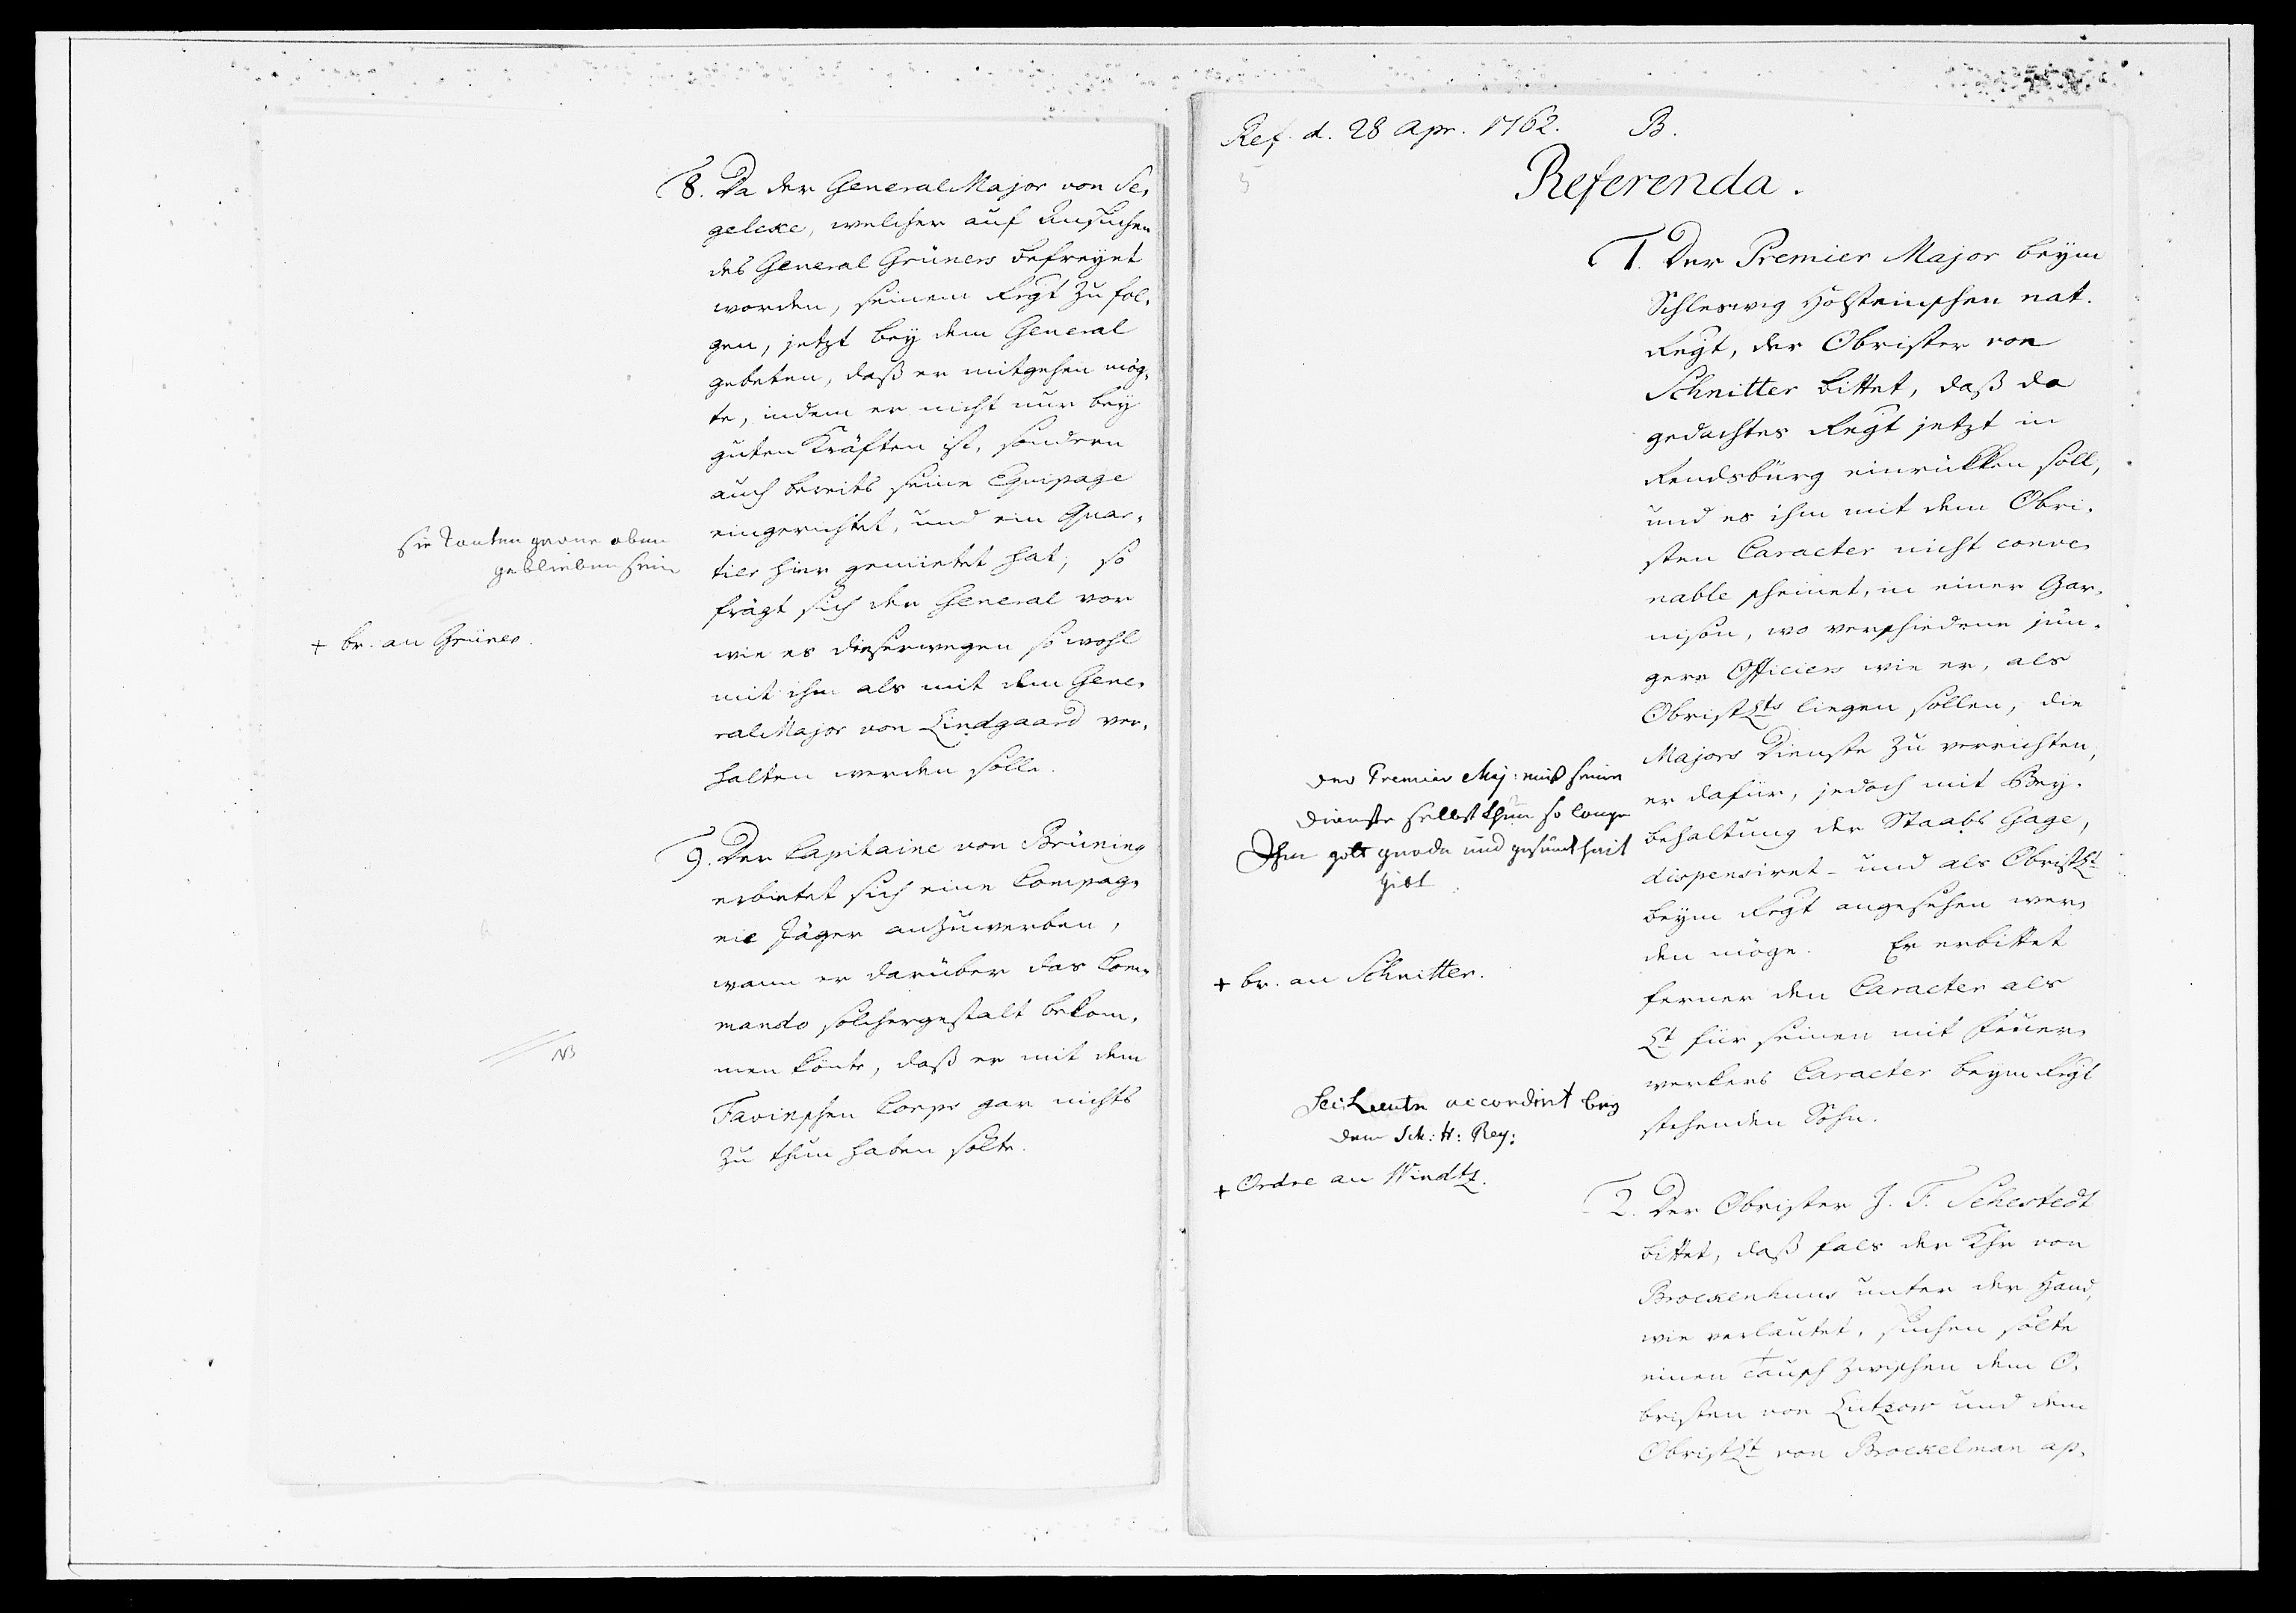 8. Da der General Major von Se,
gelcke, welcher auf Ansuchen
des General Grüners befreyet
worden, seinem Regt zu fol,
gen, jetzt bey dem General
gebeten, daß er mitgehen mög,
te, indem er nicht nur bey
guten Kräften ist, sondern
auch bereits seine Equipage
eingerichtet, und ein Quar,
tier hier gemietet hat; so
frägt sich der General vor
wie es dieserwegen so wohl
mit ihm als mit dem Gene,
ral Major von Lindgaard ver,
halten werden solle.
Sie
geblieben sein
+ br. an Grüner.
9. Der Capitaine von Brüning
erbietet sich eine Compag,
nie Jäger anzuwerben,
wann er darüber das Com,
mando solchergestalt bekom,
men könte, daß er mit dem
Corps gar nichts
zu thun haben solte.
NB
Ref. d. 28 Apr. 1762. B.
5
Referenda.
1. Der Premier Major beym
Schleswig Holsteinschen nat.
Regt, der Obrister von
Schnitter bittet, daß da
gedachtes Regt jetzt in
Rendsburg einrükken soll,
und es ihm mit dem Obri,
sten Caracter nicht conve,
nable scheinet, in einer Gar,
nison, wo verschiedene jün,
gere Officiers wie er, als
ObristLts liegen sollen, die
Majors Dienste zu verrichten,
er dafür, jedoch mit Bey,
behaltung der Staabs Gage,
dispensiret - und als ObristLt
beym Regt angesehen wer,
den möge. Er erbittet
ferner den Caracter als
Lt für seinen mit Feuer,
werkers Caracter beym Regt
stehenden Sohn.
Der Premier Maj: muß seine
Dienste selbst thun so lange
Ihm gott gnade und gesundheit
gibt
+ br. an Schnitter.
Sec: Leutn accordirt bey
dem Sch: H: Reg:
+ Ordre an Windtz.
2. Der Obrister J. F. Sehestedt
bittet, daß fals der Khr von
Brockenhuus unter der Hand,
wie verlautet, suchen solte
einen Tausch zwischen dem O,
bristen von Lützow und dem
ObristLt von Brockelman ap,